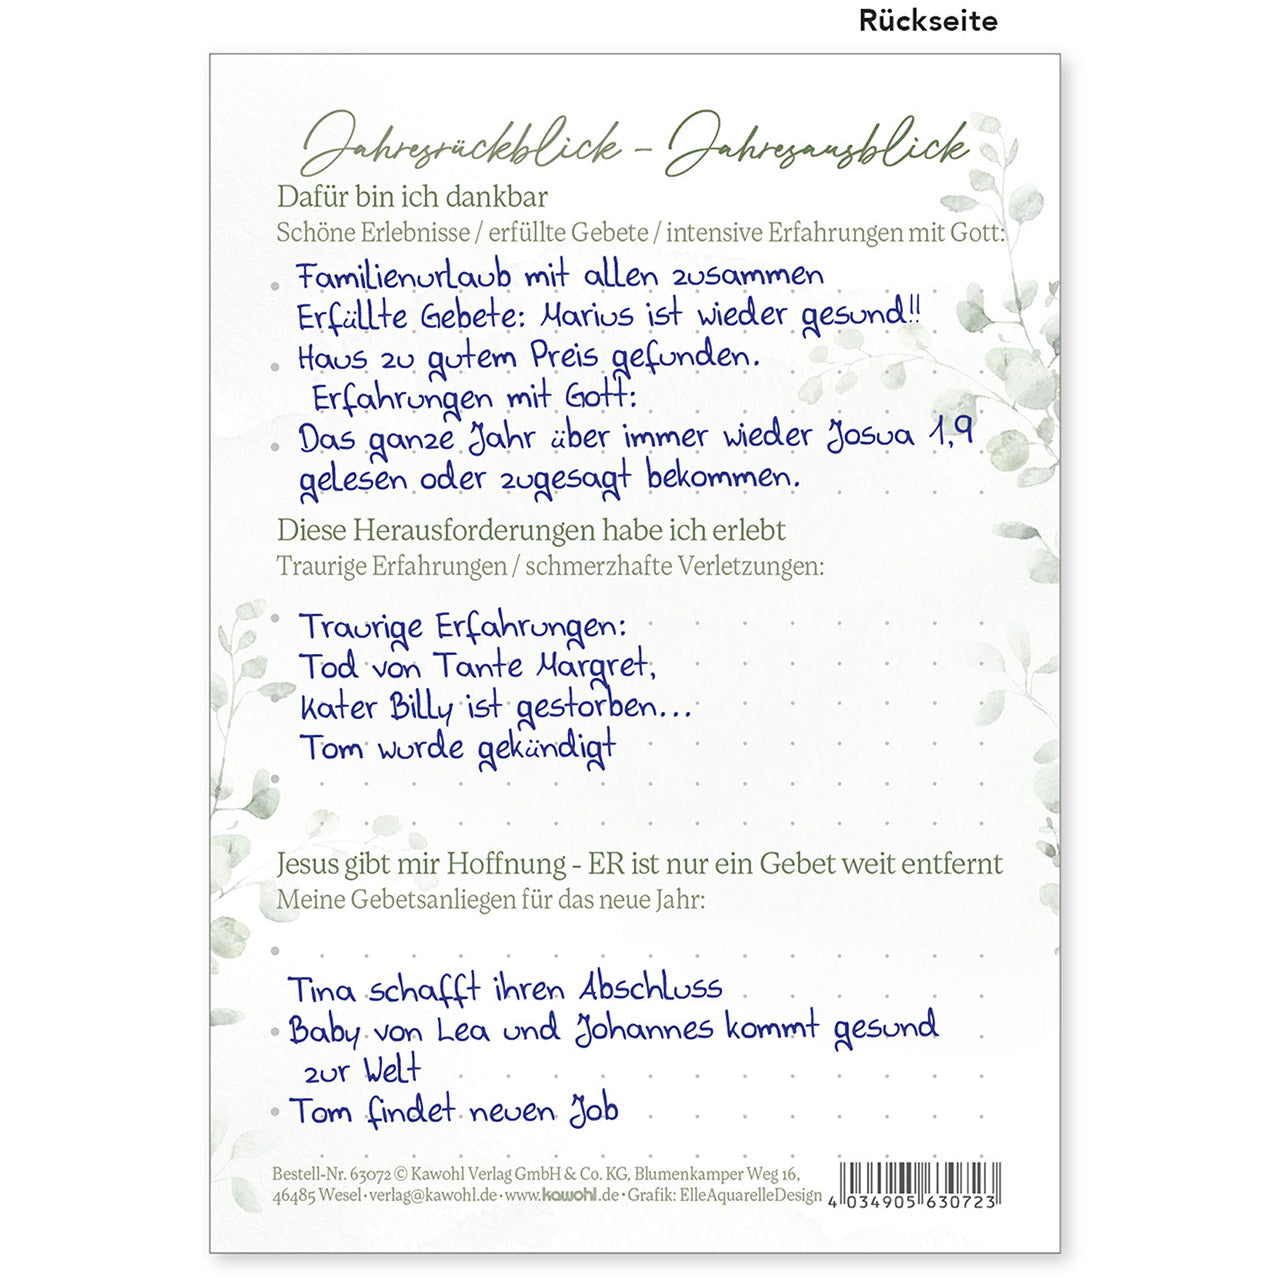 Rückseite
Jahresrückblick – Jahresausblick
Dafür bin ich dankbar
Schöne Erlebnisse / erfüllte Gebete / intensive Erfahrungen mit Gott:
Familienurlaub mit allen zusammen
Erfüllte Gebete: Marius ist wieder gesund!!
Haus zu gutem Preis gefunden.
Erfahrungen mit Gott:
Das ganze Jahr über immer wieder Josua 1,9
gelesen oder zugesagt bekommen.
Diese Herausforderungen habe ich erlebt
Traurige Erfahrungen / schmerzhafte Verletzungen:
Traurige Erfahrungen:
Tod von Tante Margret,
Kater Billy ist gestorben...
Tom wurde gekündigt
Jesus gibt mir Hoffnung - ER ist nur ein Gebet weit entfernt
Meine Gebetsanliegen für das neue Jahr:
Tina schafft ihren Abschluss
Baby von Lea und Johannes kommt gesund
zur Welt
Tom findet neuen Job
Bestell-Nr. 63072 © Kawohl Verlag GmbH & Co. KG, Blumenkamper Weg 16,
46485 Wesel · verlag@kawohl.de · www.kawohl.de · Grafik: ElleAquarelleDesign
4 034905 630723